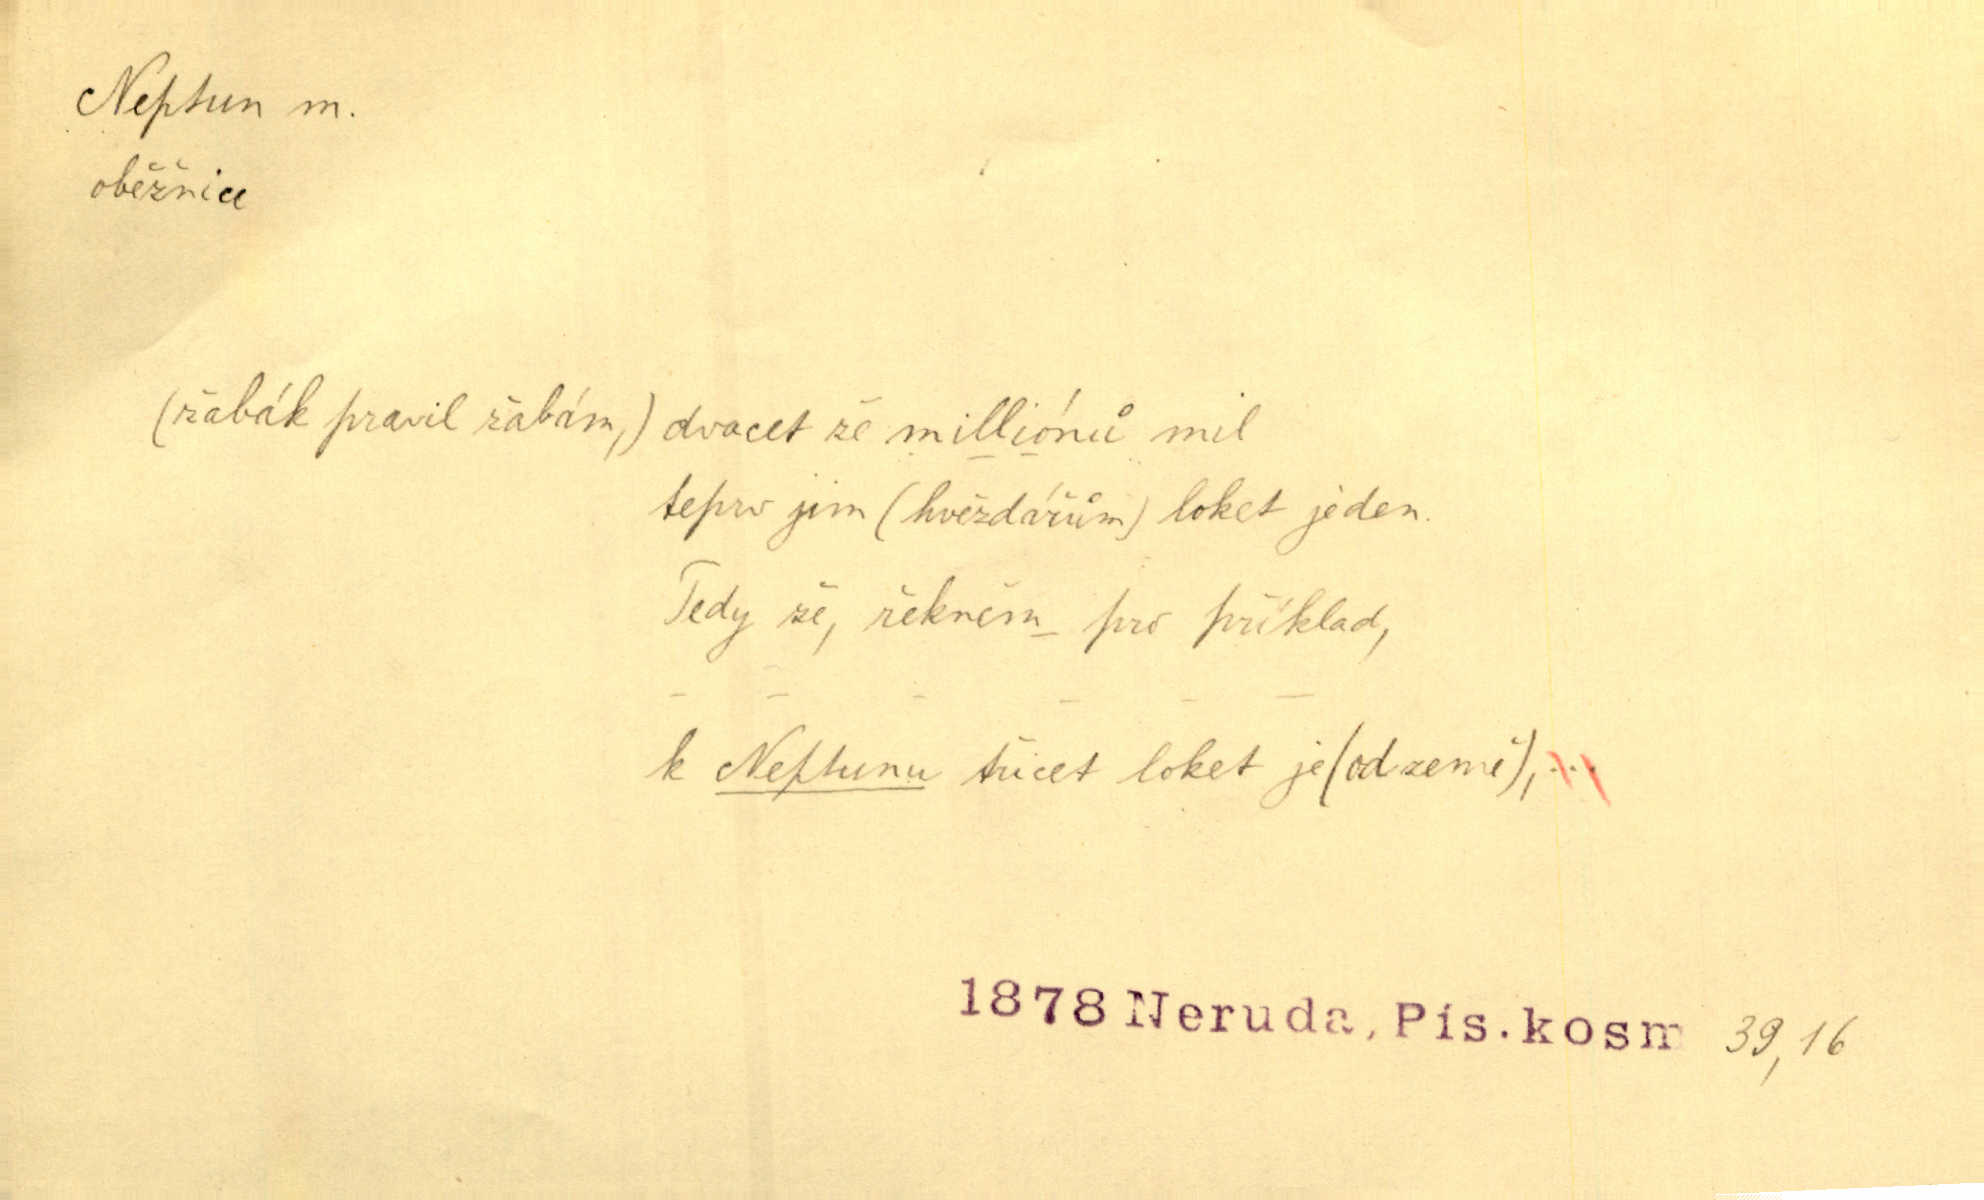 Neptun m.
oběžnice
(žabák pravil žabám,) dvacet že milliónů mil
teprv jim (hvězdářům) loket jeden.
Tedy že, řekněm pro příklad,
– – – – – –
k Neptunu třicet loket je (od země), ...
1878 Neruda, Pís. kosm 39,16